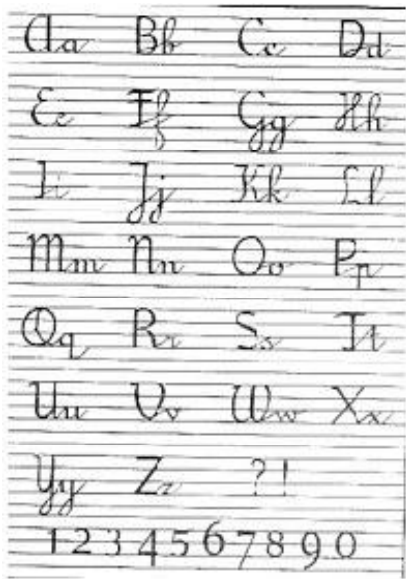 Aa Bb Cc Dd
Ee Ff Gg Hh
Ii Jj Kk Ll
Mm Nn Oo Pp
Qq Rr Ss Tt
Uu Vv Ww Xx
Yy Zz ?!
1 2 3 4 5 6 7 8 9 0